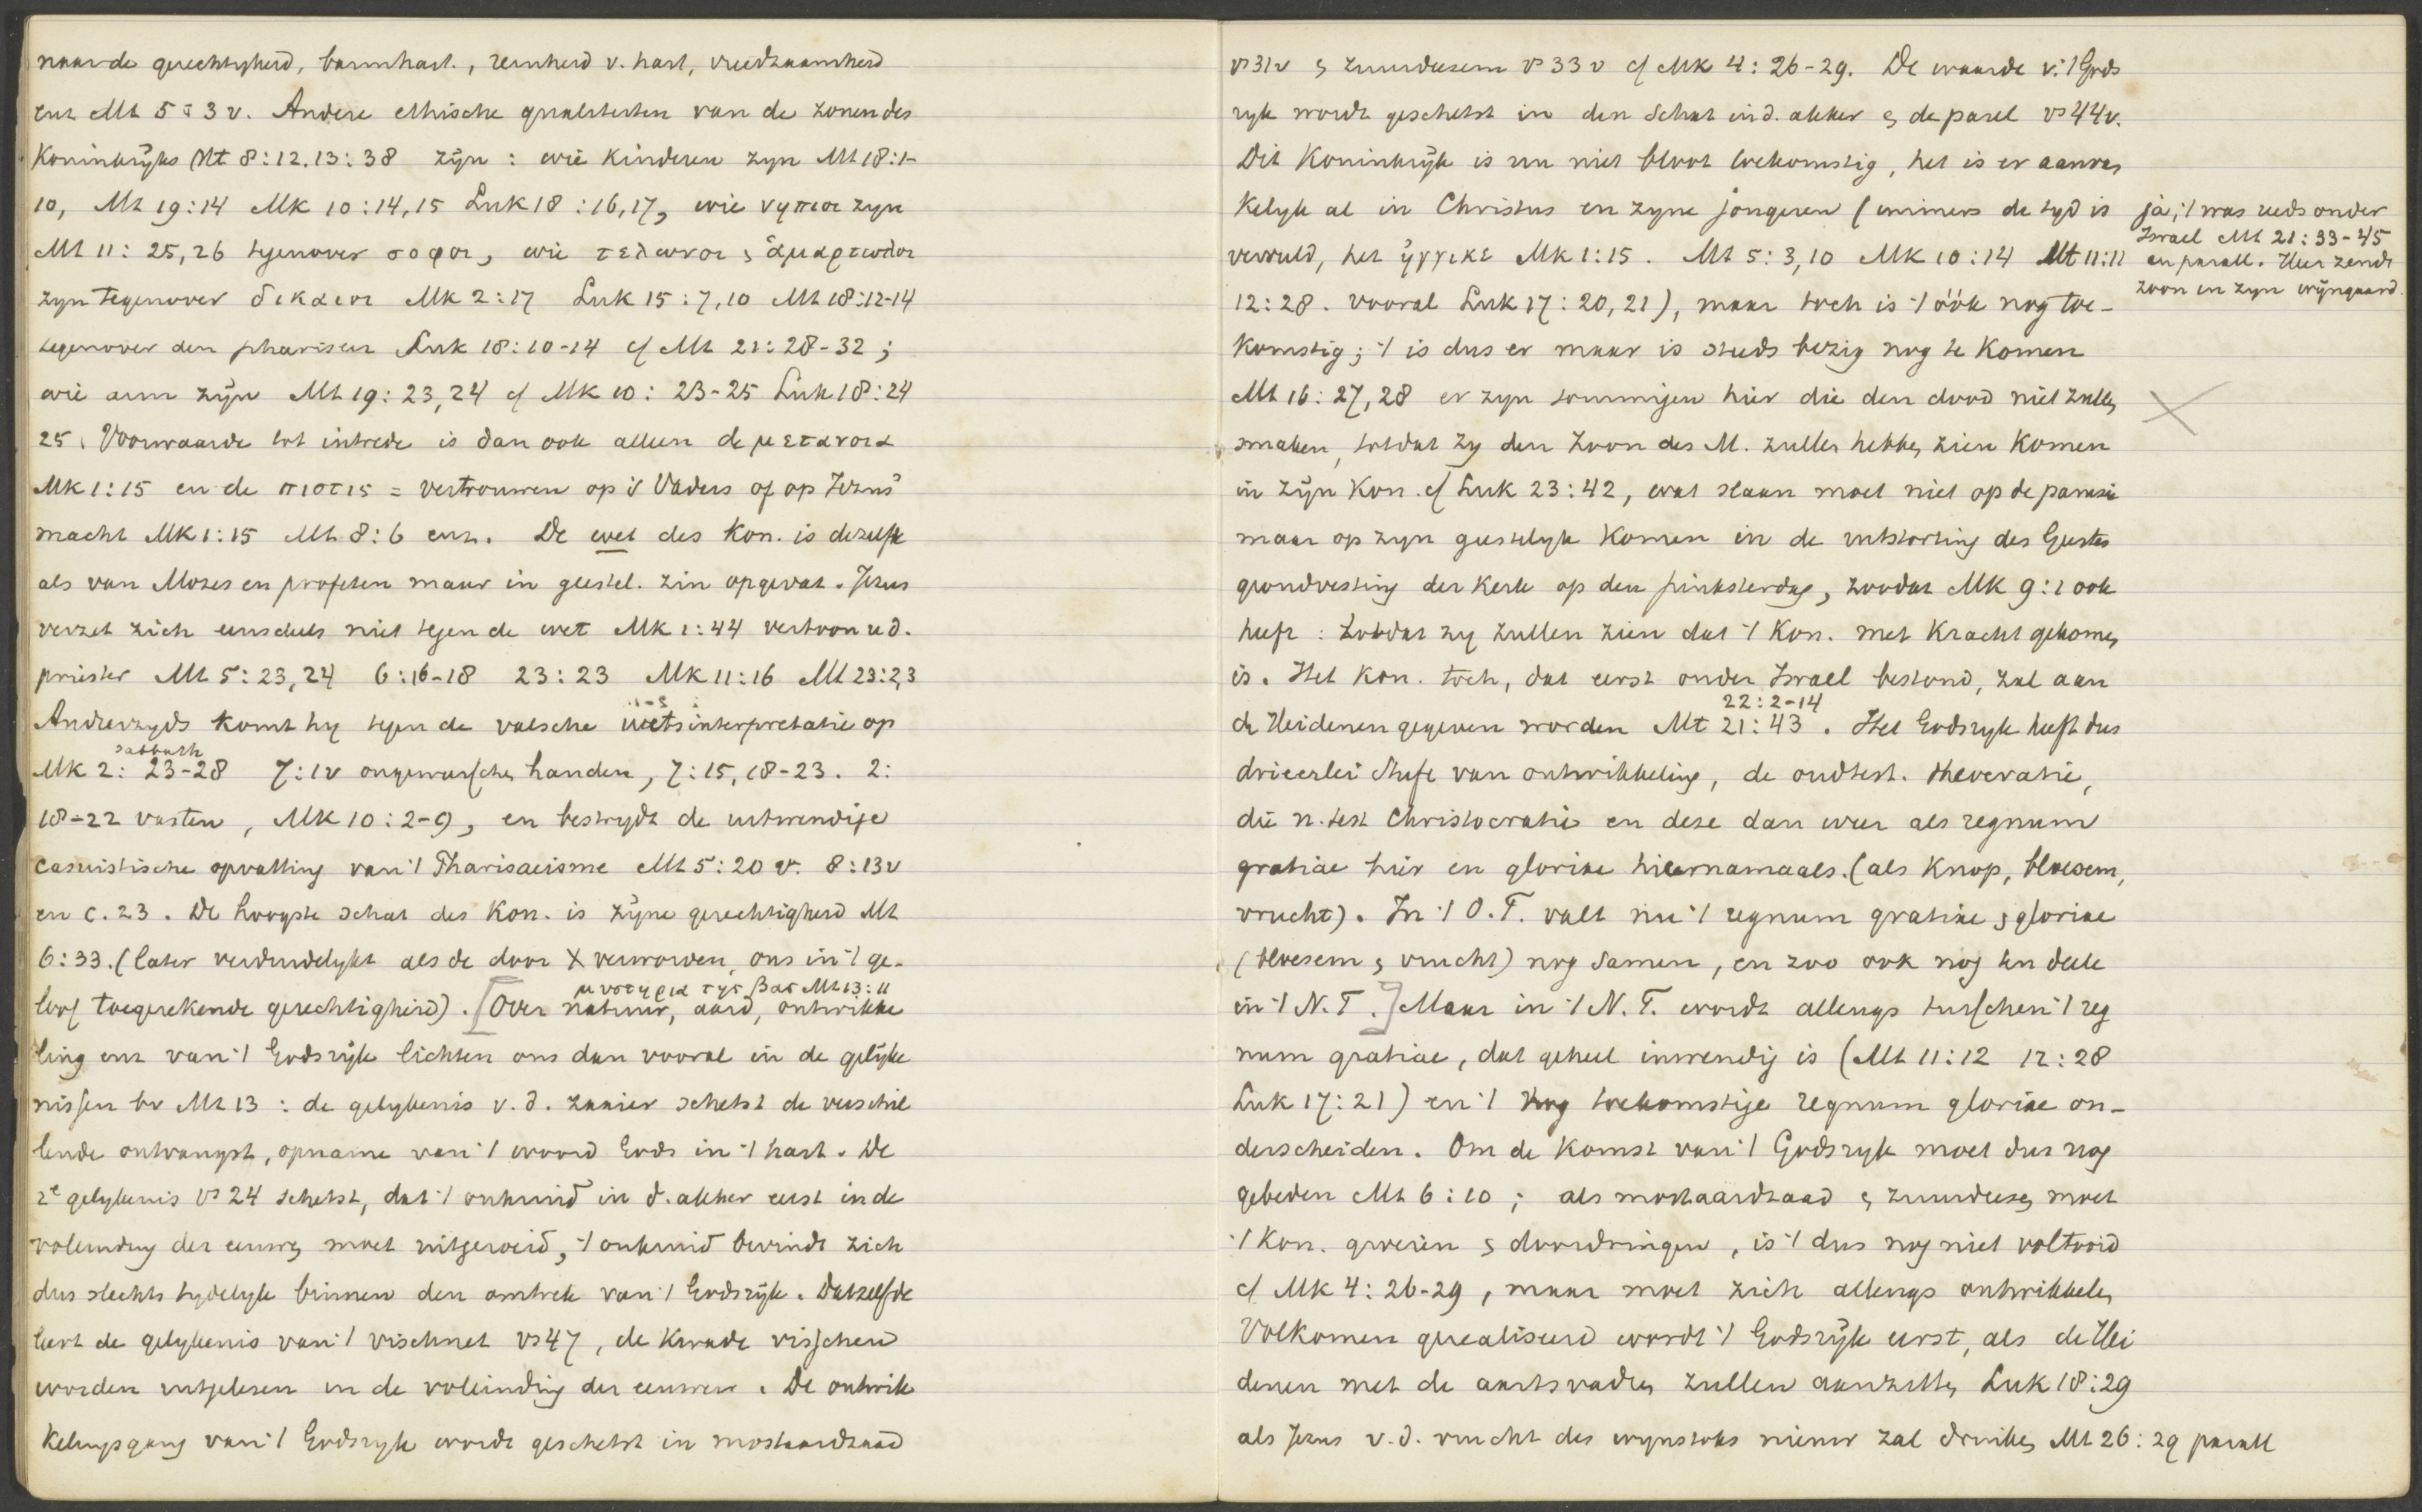 naar de gerechtigheid, barmhart., reinheid v. hart, vreedzaamheid
enz Mt 5:3v. Andere ethische qualiteiten van de zonen des
Koninkrijks (Mt 8:12. 13:38 zijn : wie kinderen zyn Mt 18:1-
10, Mt 19:14 Mk 10:14,15 Luk 18:16,17, wie νηπιοι zyn
Mt 11:25,26 tegenover σοφοι, wie τελωναι & ἁμαρτωλοι
zyn tegenover δικαιοι Mk 2:17 Luk 15:7,10 Mt 18:12-14
tegenover den phariseër Luk 18:10-14 cf Mt 21:28-32;
wie arm zijn Mt 19:23,24 cf Mk 10:23-25 Luk 18:24
25. Voorwaarde tot intrede is dan ook alleen de μετανοια
Mk 1:15 en de πιστις = vertrouwen op 's Vaders of op Jezus'
macht Mk 1:15 Mt 8:6 enz. De wet des Kon. is dezelfde
als van Mozes en profeten maar in geestel. zin opgevat. Jezus
verzet zich eensdeels niet tegen de wet Mk 1:44 vertoon u d.
priester Mt 5:23,24 6:16-18 23:23 Mk 11:16 Mt 23:2,3
Anderzyds komt hy tegen de valsche wetsinterpretatie op
sabbath
Mk 2:23-28 7:1v ongewasschen handen, 7:15,18-23. 2:
18-22 vasten, Mk 10:2-9, en bestrydt de uitwendige
casuistische opvatting van 't Pharisaeisme Mt 5:20v. 8:13v
en c. 23. De hoogste schat des Kon. is zijne gerechtigheid Mt
6:33. (later verduidelykt als de door X verworven, ons in 't ge-
μυστηρια της βας Mt 13:11
loof toegerekende gerechtigheid). [Over natuur, aard, ontwikke
ling enz van 't Godsrijk lichten ons dan vooral in de gelijke
nissen bv Mt 13 : de gelykenis v.d. zaaier schetst de verschil
lende ontvangst, opname van 't woord Gods in 't hart. De
2e gelykenis vs 24 schetst, dat 't onkruid in d. akker eerst in de
voleinding der eeuwen moet uitgeroeid, 't onkruid bevindt zich
dus slechts tydelyk binnen den omtrek van 't Godsrijk. Datzelfde
leert de gelykenis van 't vischnet vs 47, de kwade visschen
worden uitgelezen in de voleinding der eeuwen. De ontwik
kelingsgang van 't Godsryk wordt geschetst in mostaardzaad
vs 31v & zuurdeesem vs 33v cf Mk 4:26-29. De waarde v. 't Gods
ryk wordt geschetst in den schat in d. akker & de parel vs 44v.
Dit Koninkrijk is nu niet bloot toekomstig, het is er aanvan
kelyk al in Christus en zyne jongeren (immers de tyd is
vervuld, het ἠγγικε Mk 1:15. Mt 5:3,10 Mk 10:14 Mt 11:11
12:28. vooral Luk 17:20,21), maar toch is 't óók nog toe-
komstig; 't is dus er maar is steeds bezig nog te komen
ja, 't was reeds onder
Israel Mt 21:33-45
en parall. Heer zendt
zoon in zyn wijngaard.
Mt 16:27,28 er zyn sommigen hier die den dood niet zullen
smaken, totdat zy den Zoon des M. zullen hebben zien komen
in zijn Kon. cf Luk 23:42, wat slaan moet niet op de parusie
maar op zyn geestelyk komen in de uitstorting des Geestes
grondvesting der kerk op den pinksterdag, zoodat Mk 9:1 ook
heeft : totdat zy zullen zien dat 't Kon. met kracht gekomen
is. Het Kon. toch, dat eerst onder Israel bestond, zal aan
22:2-14
de Heidenen gegeven worden Mt 21:43. Het Godsryk heeft dus
drieerlei stufe van ontwikkeling, de oudtest. theocratie,
die n. test Christocratie en deze dan weer als regnum
gratiae hier en gloriae hiernamaals. (als knop, bloesem,
vrucht). In 't O.T. valt nu 't regnum gratiae & gloriae
(bloesem & vrucht) nog samen, en zoo ook nog ten deele
in 't N.T.] Maar in 't N.T. wordt allengs tusschen 't reg
num gratiae, dat geheel inwendig is (Mt 11:12 12:28
Luk 17:21) en 't nog toekomstige regnum gloriae on-
derscheiden. Om de komst van 't Godsryk moet dus nog
gebeden Mt 6:10; als mostaardzaad & zuurdeeg moet
't Kon. groeien & doordringen, is 't dus nog niet voltooid
cf Mk 4:26-29, maar moet zich allengs ontwikkelen
Volkomen gerealiseerd wordt 't Godsrijk eerst, als de Hei
denen met de aartsvaders zullen aanzitten Luk 18:29
als Jezus v.d. vrucht des wynstoks nieuw zal drinken Mt 26:29 parall